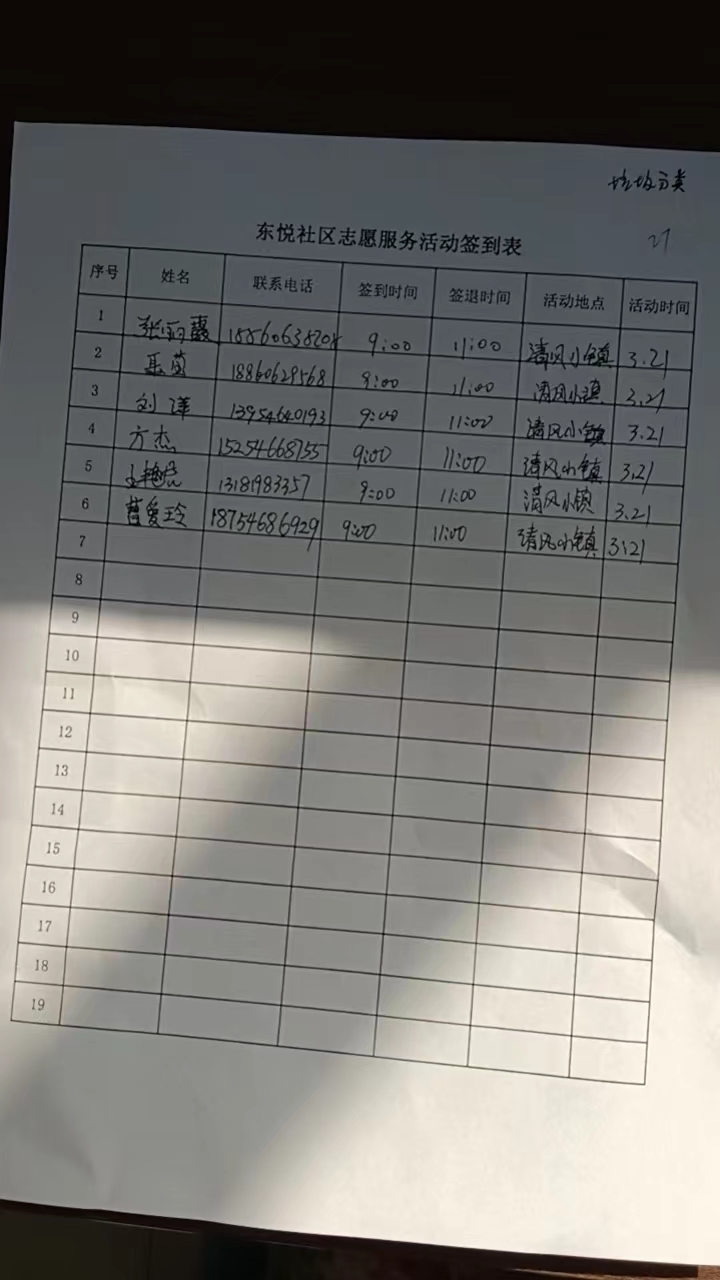 垃圾分类
东悦社区志愿服务活动签到表
21
序号 姓名 联系电话 签到时间 签退时间 活动地点 活动时间
1 张丽霞 9:00 11:00 清风小镇 3.21
2 18860629568 9:00 11:00 清风小镇 3.21
3 刘洋 13954640193 9:00 11:00 清风小镇 3.21
4 方杰 15254668755 9:00 11:00 清风小镇 3.21
5 13181983357 9:00 11:00 清风小镇 3.21
6 曹爱玲 18754686929 9:00 11:00 清风小镇 3.21
7
8
9
10
11
12
13
14
15
16
17
18
19